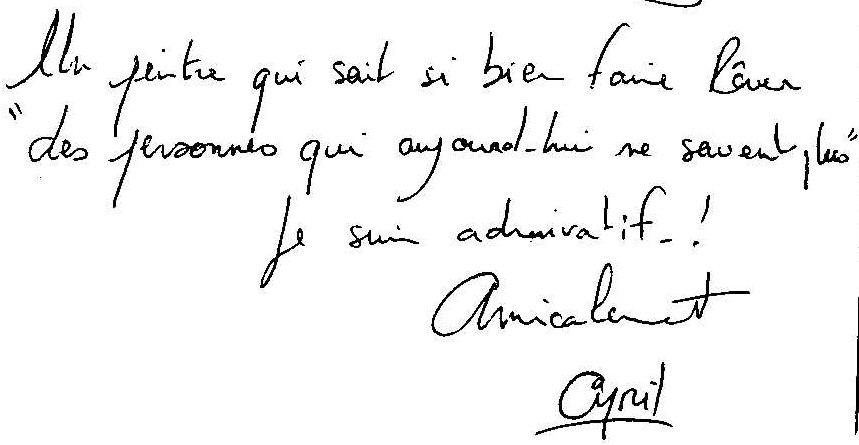 Un peintre qui sait si bien faire Rêver
"des personnes qui aujourd-hui ne savent plus"
Je suis admiratif-!
Amicalement
Cyril